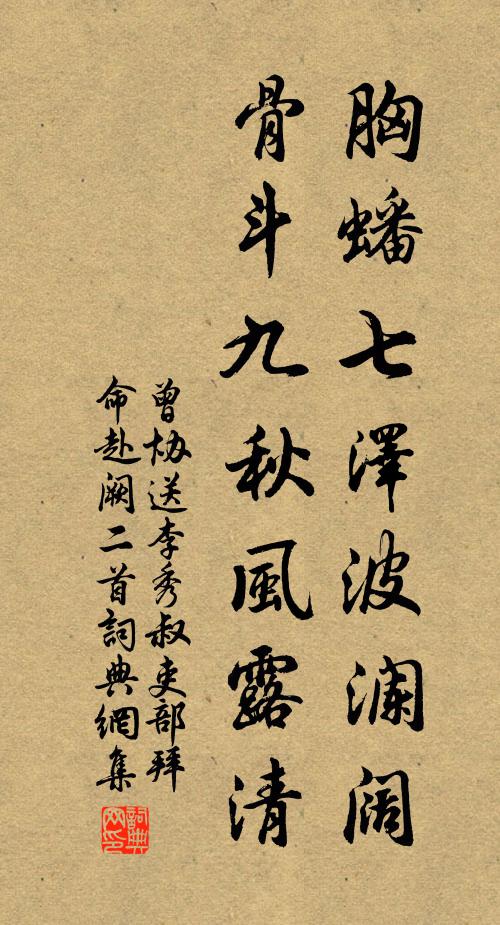 胸蟠七澤波澜阔
骨斗九秋風露清
曾协送李秀叔吏部拜
命赴阙二首詞典網集
詞典
网印